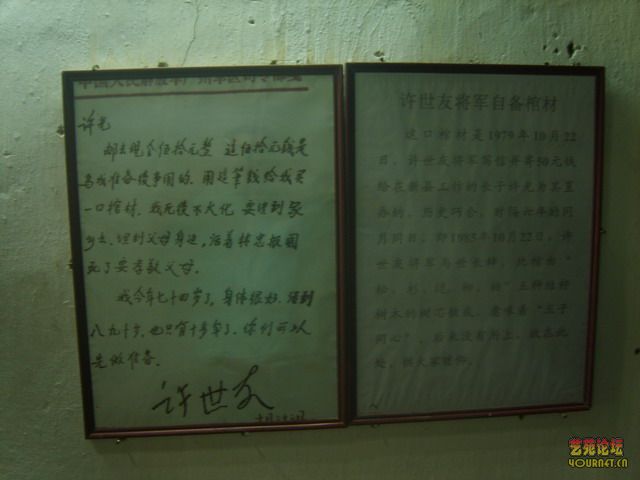 许光
邮去现金伍拾元整 这伍拾元钱是
为我准备后事用的. 用这笔钱给我买
一口棺材. 我死后不火化 要埋到家
乡去, 埋到父母身边, 活着精忠报国
死了要孝敬父母.
我今年七十四岁了, 身体很好. 活到
八九十岁, 也只有十多年了. 你们可以
先做准备.
许世友
十月二十二日
许世友将军自备棺材
这口棺材是1979年10月22
日，许世友将军写信并寄50元钱
给在新县工作的长子许光为其置
办的。历史巧合，时隔六年的同
月同日，即1985年10月22日，许
世友将军与世长辞。此棺由“
松、杉、
树木的树芯做成，意味着“五子
同心”。后来没有用上，故在此
处，供大家瞻仰。
艺苑论坛
YOURNET.CN